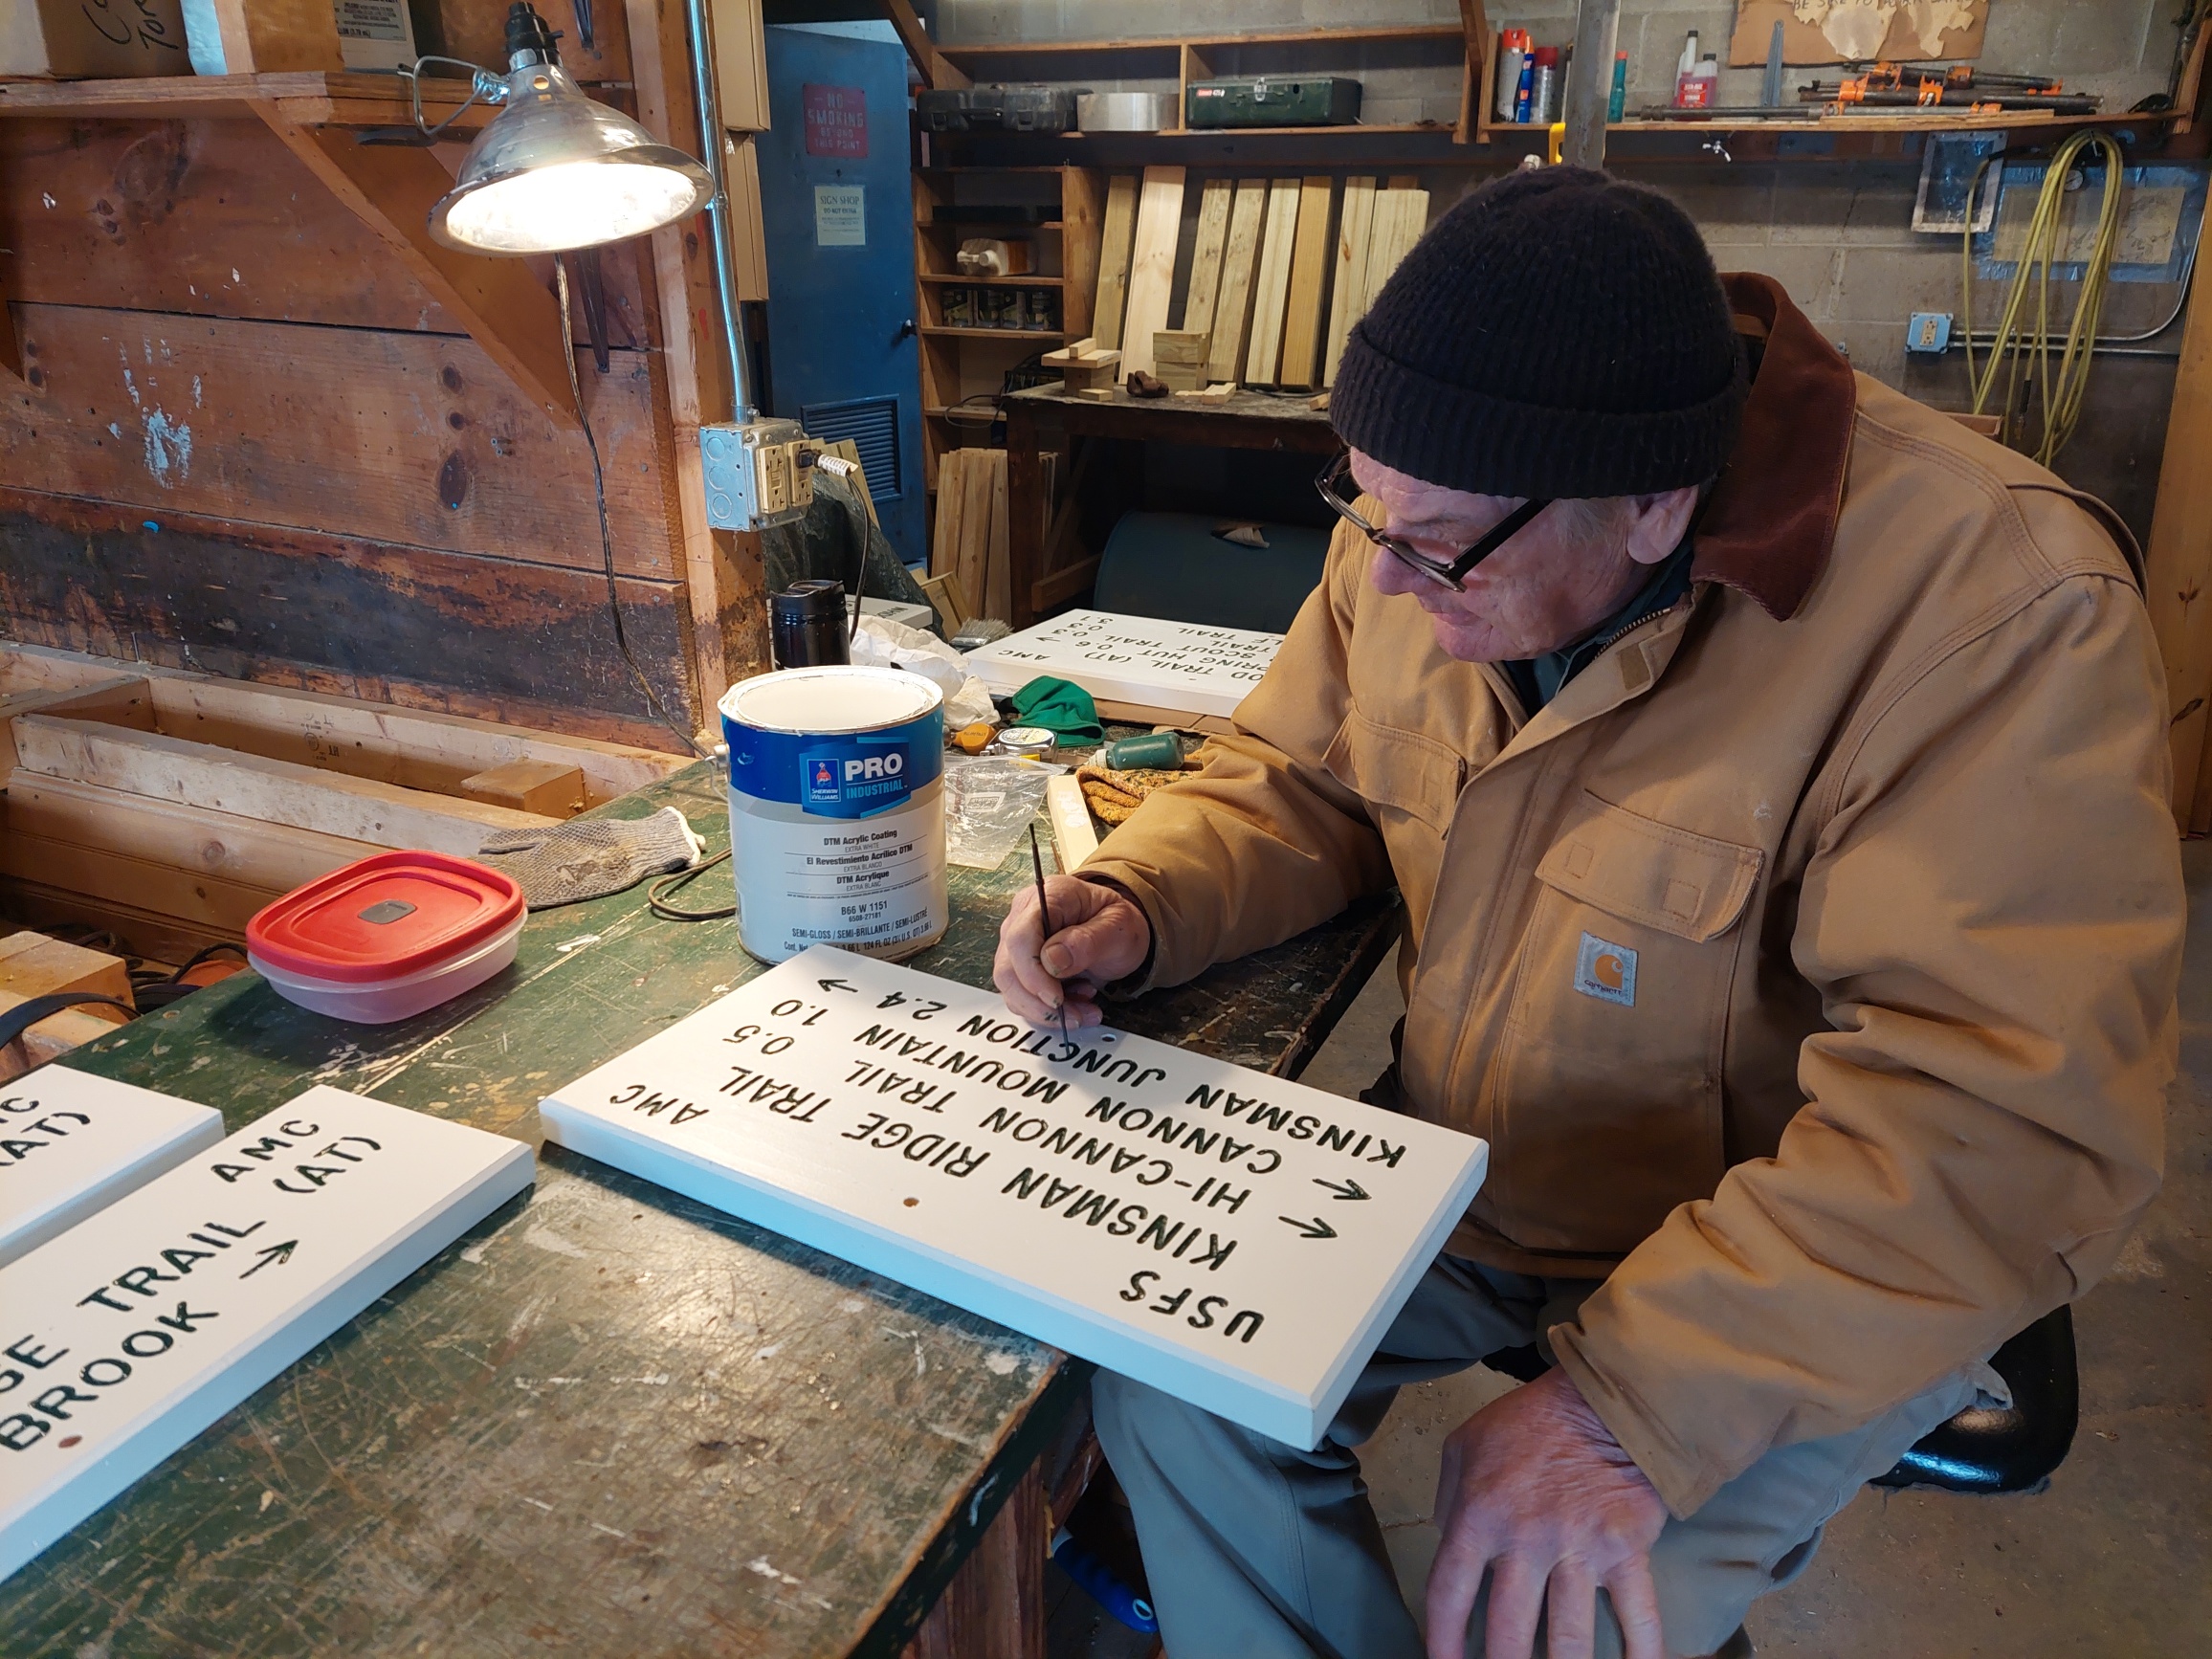 NO
SMOKING
BEYOND
THIS POINT
SIGN SHOP
PRO
INDUSTRIAL
SHERWIN
WILLIAMS
DTM Acrylic Coating
EXTRA WHITE
El Revestimiento Acrílico DTM
EXTRA BLANCO
DTM Acrylique
EXTRA BLANC
B66 W 1151
6508-27181
SEMI-GLOSS / SEMI-BRILLANTE / SEMI-LUSTRÉ
carhartt
USFS AMC
KINSMAN RIDGE TRAIL
← HI-CANNON TRAIL 0.5
← CANNON MOUNTAIN 1.0
KINSMAN JUNCTION 2.4 →
AMC
(AT)
GE TRAIL
BROOK →
(AT)
AMC
TRAIL (AT) →
PRING HUT 0.6
SCOUT TRAIL 0.3
TRAIL 0.3
LF TRAIL 3.1